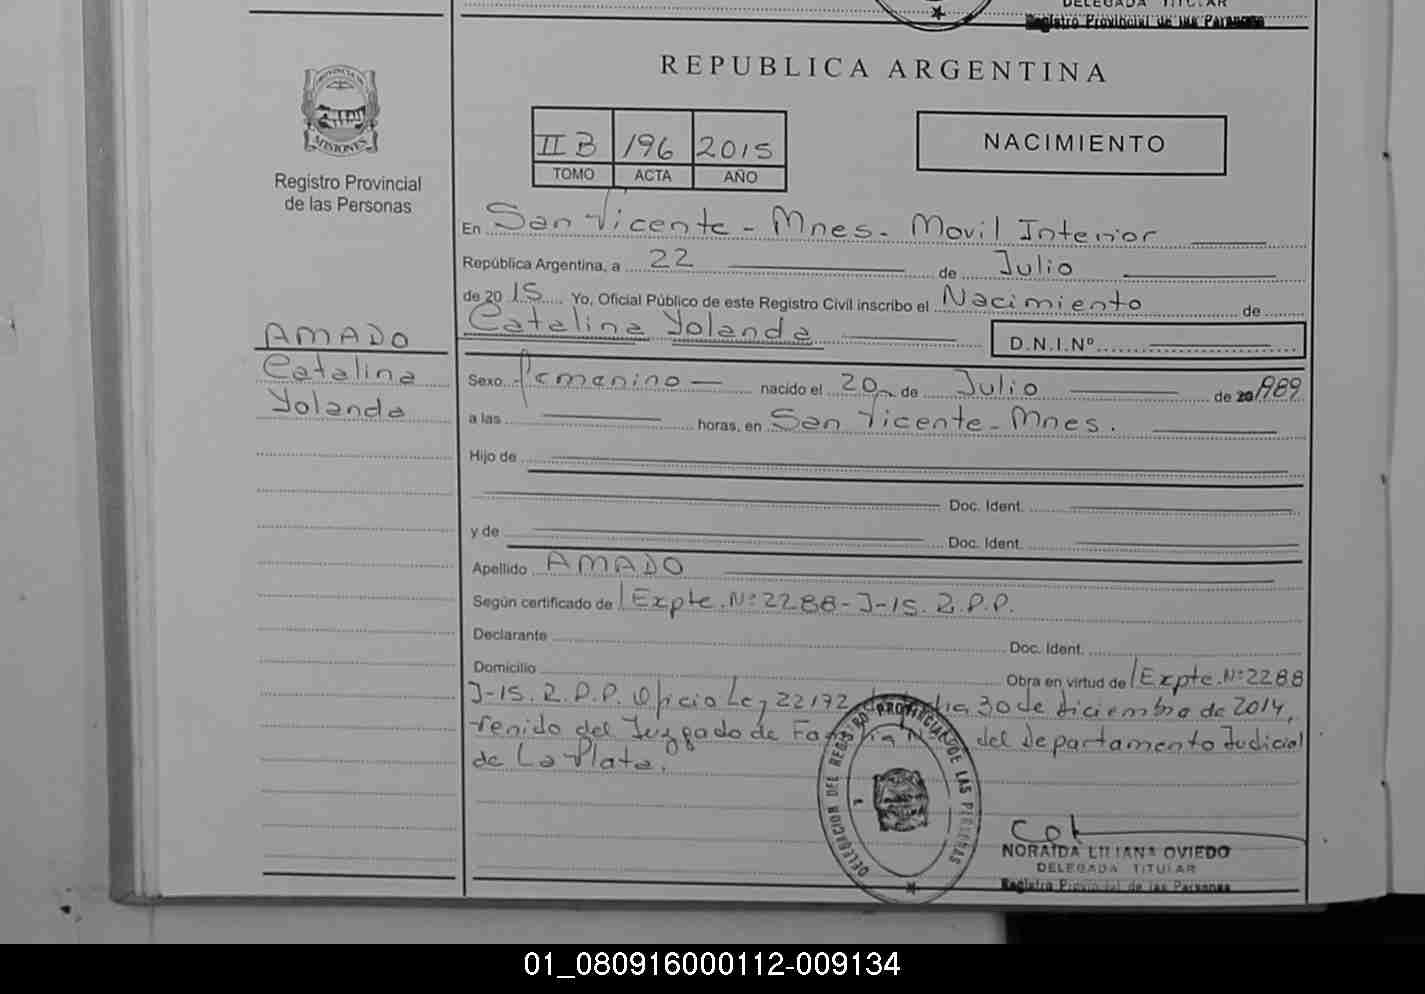 DELEGADA TITULAR
Registro Provincial de las Personas
REPUBLICA ARGENTINA
PROVINCIA DE
MISIONES
Registro Provincial
de las Personas
II B 196 2015
TOMO ACTA AÑO
NACIMIENTO
En San Vicente - Mnes. Movil Interior
República Argentina, a 22 de Julio
de 2015 Yo, Oficial Público de este Registro Civil inscribo el Nacimiento de
Catalina Yolanda D.N.I.Nº
AMADO
Catalina
Yolanda
Sexo Femenino nacido el 20 de Julio de 20 1989
a las horas, en San Vicente - Mnes.
Hijo de
Doc. Ident.
y de
Doc. Ident.
Apellido AMADO
Según certificado de Expte. Nº 2288-J-15. R.P.P.
Declarante Doc. Ident.
Domicilio Obra en virtud de Expte. Nº 2288
J-15. R.P.P. Oficio Ley 22172 30 de diciembre de 2014,
venido del Juzgado de del departamento Judicial
de La Plata.
DELEGACION DEL REGISTRO PROVINCIAL DE LAS PERSONAS
NORAIDA LILIANA OVIEDO
DELEGADA TITULAR
Registro Provincial de las Personas
01_080916000112-009134